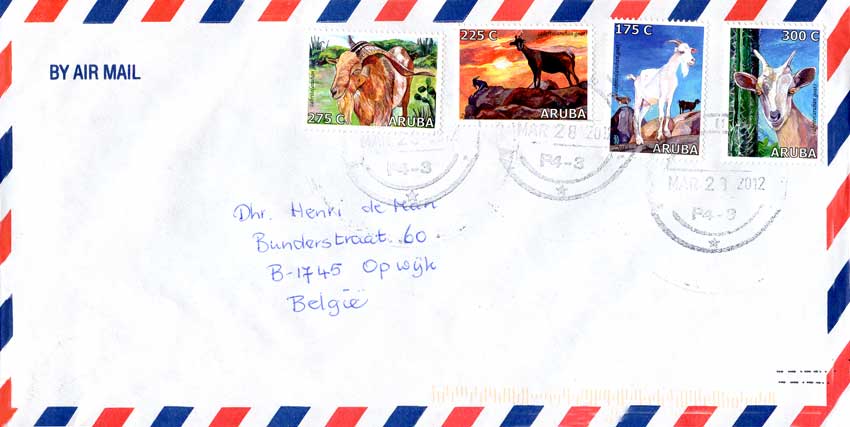 BY AIR MAIL
275 C
ARUBA
225 C
ARUBA
175 C
ARUBA
300 C
ARUBA
MAR 28 2012
P4-3
MAR 28 2012
P4-3
MAR 2 2012
P4-3
Dhr. Henri de Man
Bunderstraat 60
B-1745 Opwijk
België